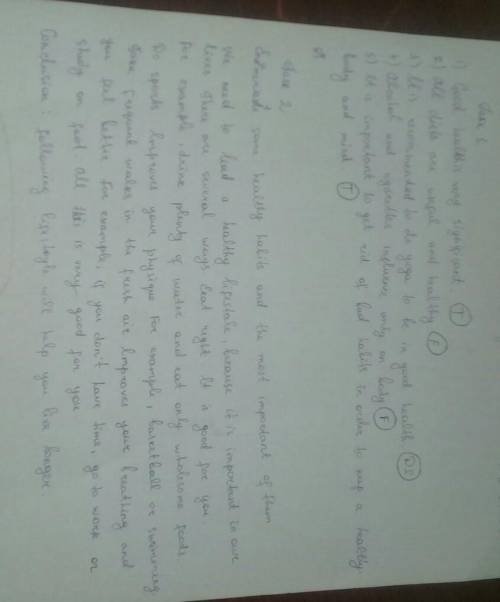 Ukra 1
1) Good health is very significant (T)
2) All diets are useful and healthy (F)
3) It is recommended to do yoga to be in good health (DS)
4) Alcohol and cigarettes influence only on body (F)
5) It is important to get rid of bad habits in order to keep a healthy
body and mind (T)
2
Some healthy habits and the most important of them
We need to lead a healthy lifestale, because it is important in our
lives There are several ways Eat right It is good for you
For example, drink plenty of water and eat only wholesome foods.
Do sports Improves your physique For example, basketball or swimming
Frequent walks in the fresh air Improves your breathing and
you feel better For example, if you don't have time, go to work or
study on foot All this is very good for you
Conclusion: following lifestyle will help you live longer